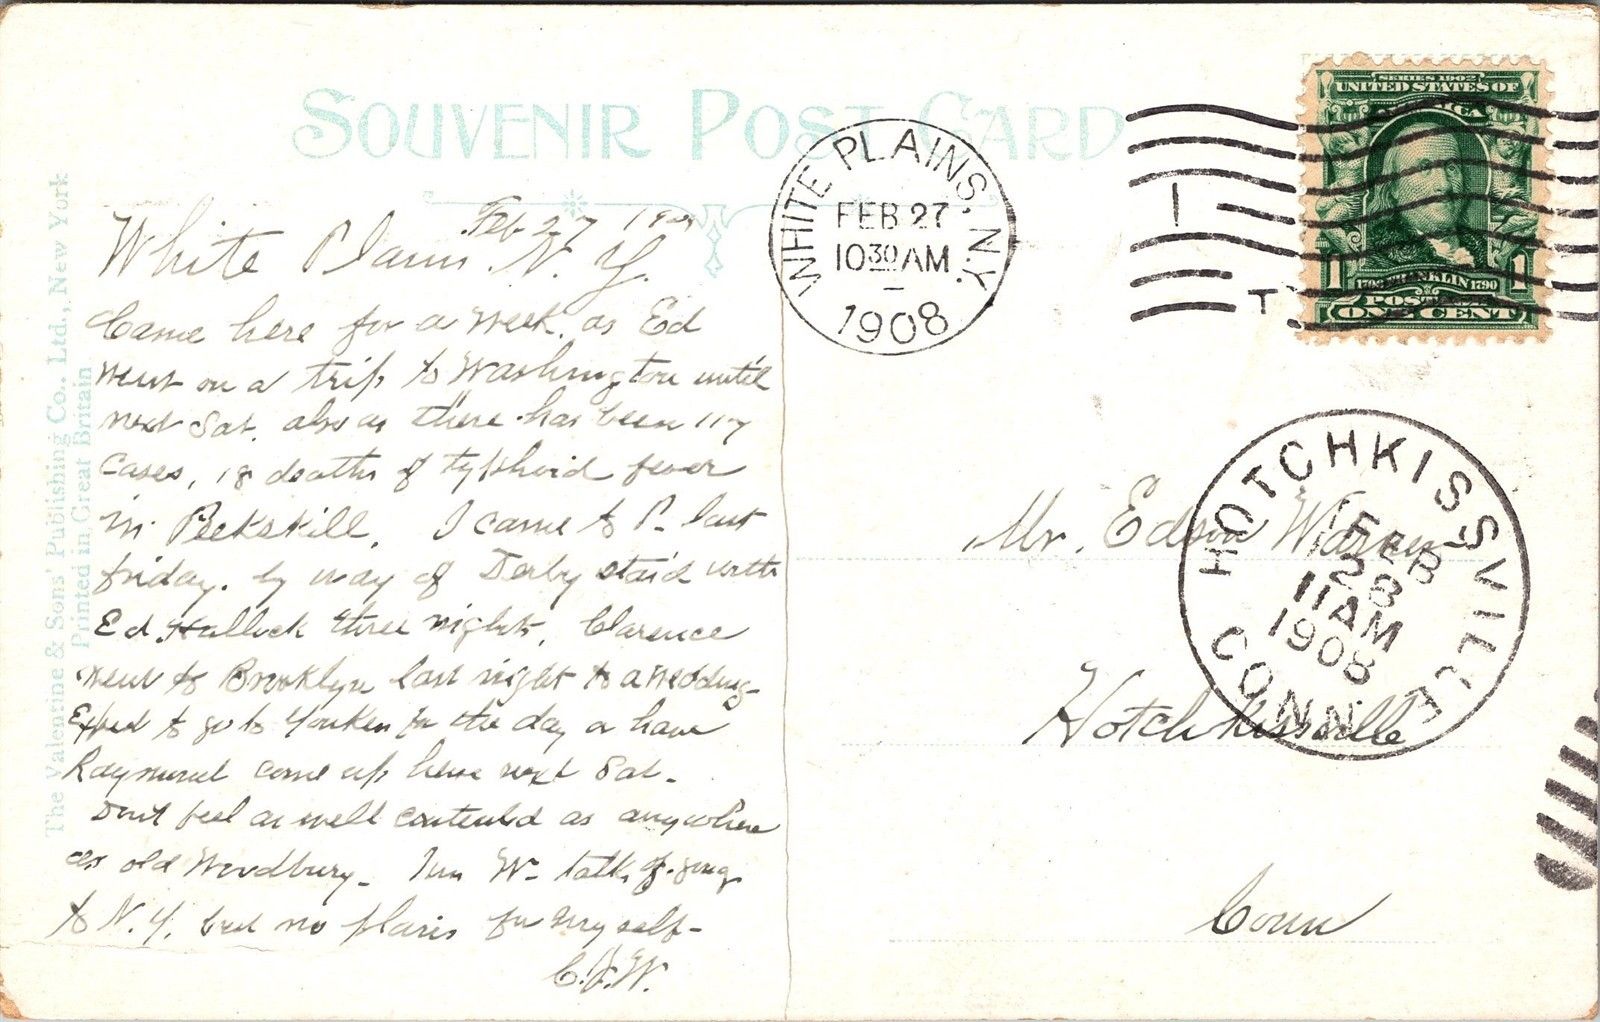 SOUVENIR POST CARD
The Valentine & Sons' Publishing Co., Ltd., New York
Printed in Great Britain
Feb 27
White Plains N. Y.
Came here for a week, as Ed
went on a trip to Washington until
next Sat. also as there has been 117
cases, 18 deaths of typhoid fever
in Peekskill. I came to P. last
friday. by way of Derby staid with
Ed. Hallock three nights. Clarence
went to Brooklyn last night to a wedding
Expect to go to Yonkers for the day or have
Raymond come up here next Sat-
Dont feel as well contented as anywhere
as old Woodbury- W- talks of going
to N.Y. but no plans for myself-
C.J.W.
WHITE PLAINS, N.Y.
FEB 27
10 30 AM
1908
1
T
SERIES 1902
UNITED STATES OF
AMERICA
1706 FRANKLIN 1790
POSTAGE
1 1
ONE CENT
HOTCHKISSVILLE
FEB
28
11 AM
1908
CONN
Mr. Edson Warner
Hotchkissville
Conn